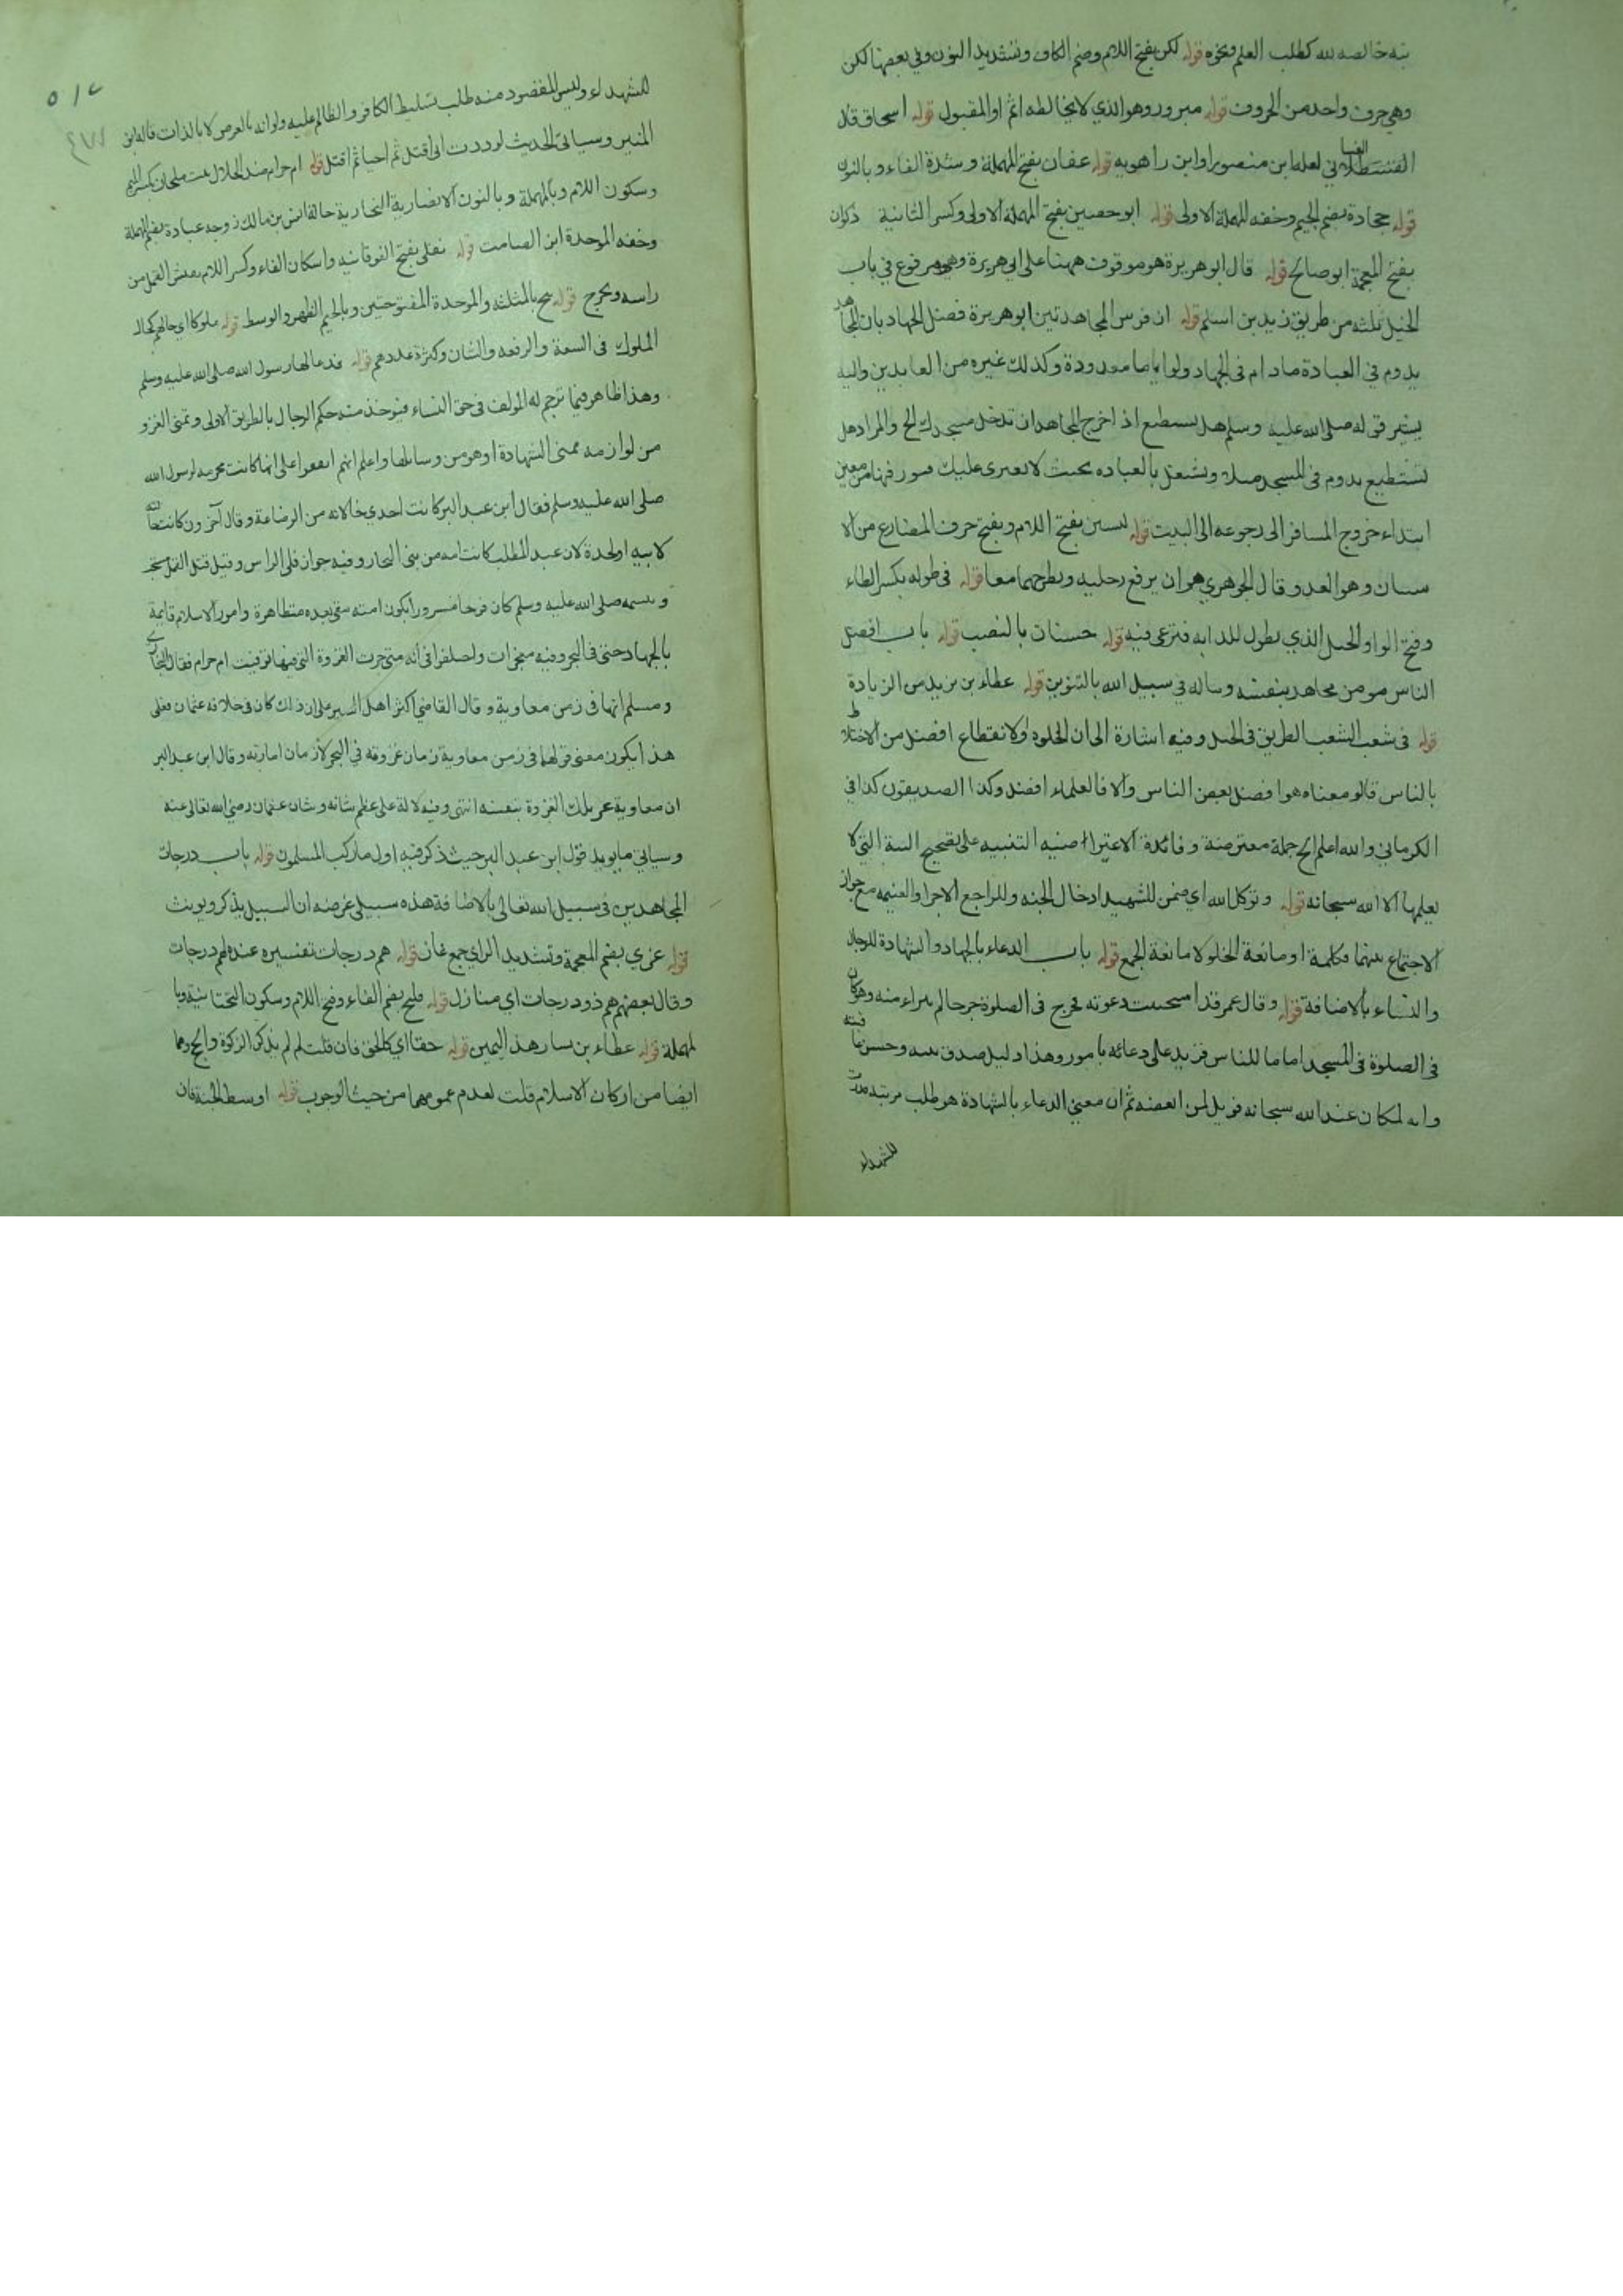 نية خالصة لله كطلب العلم ونحوه قوله لكن بفتح اللام وضم الكاف وتشديد النون وفي بعضها لكن
وهي حرف واحد من الحروف قوله مبرور وهو الذي لا يخالطه اثم او المقبول قوله اسحاق قال
القسطلاني لعله ابن منصور او ابن راهويه قوله عفان بفتح المهملة وشدة الفاء وبالنون
قوله جحادة بضم الجيم وخفه المهملة الاولى قوله ابو حصين بفتح المهملة الاولى وكسر الثانية ذكوان
بفتح المعجمة ابو صالح قوله قال ابو هريرة هو موقوف ههنا على ابي هريرة وهو مرفوع في باب
الخيل ثلثه من طريق زيد بن اسلم قوله ان فرس المجاهد تبين ابو هريرة فضل الجهاد بان المجاهد
يدوم في العبادة ما دام في الجهاد ولو اياما معدودة وكذلك غيره من العابدين واليه
يشير قوله صلى الله عليه وسلم هل تستطيع اذ اخرج المجاهد ان تدخل مسجدك الخ والمراد هل
تستطيع يدوم في المسجد مثلا وتشتغل بالعباده بحيث لا يعترى عليك فتور فيها من حين
ابتداء خروج المسافر الى رجوعه الى البيت قوله ليستن بفتح اللام وبفتح حرف المضارع من الا
ستنان وهو العدو قال الجوهري هو ان يرفع رجليه ويطرحهما معا قوله في طوله بكسر الطاء
وفتح الواو الحبل الذي يطول للدابه فترعى فيه قوله حسنات بالنصب قوله باب افضل
الناس مومن مجاهد بنفسه وماله في سبيل الله بالتنوين قوله عطاء بن يزيد من الزيادة
قوله في شعب الشعب الطريق في الجبل وفيه اشارة الى ان الخلوة والانقطاع افضل من الاختلاط
بالناس قالو معناه هوا فضل بعض الناس والا فالعلماء افضل وكذا الصديقون كذا في
الكرماني والله اعلم الخ جملة معترضة وفائدة الاعتراضيه التنبيه على تصحيح النية التي لا
يعلمها الا الله سبحانه قوله وتوكل الله اي ضمن للشهيد ادخال الجنه وللراجع الاجر او الغنيمه مع جواز
الاجتماع بينهما فكلمة او مانعة الخلو لا مانعة الجمع قوله باب الدعاء بالجهاد والشهادة للرجال
والنساء بالاضافة قوله وقال عمر قد استجيبت دعوته فجرح في الصلوة جرحا لم يبراء منه وهو كان
في الصلوة في المسجد اماما للناس فزيد على دعائه بامور وهذا دليل صدق نيته وحسن ما فيه
وانه لمكان عند الله سبحانه فويل لمن ابغضه ثم ان معنى الدعاء بالشهادة هو طلب مرتبة
للشهداء
٥١٢
للشهداء وليس المقصود منه طلب تسليط الكافر والظالم عليه ولو انه بالعرض لا بالذات قاله ابن
المنير وسياتى الحديث لوددت انى اقتل ثم احيا ثم اقتل قوله ام حرام ضد الحلال بنت ملحان بكسر الميم
وسكون اللام وبالمهملة وبالنون الانصارية النجارية خالة انس بن مالك زوجه عبادة بضم المهملة
وخفه الموحدة ابن الصامت قوله تفلى بفتح الفوقانيه واسكان الفاء وكسر اللام يفتش القمل من
راسه ويخرج قوله ثبج بالمثلثه والموحدة المفتوحتين وبالجيم الظهر والوسط قوله ملوكا اي حالهم كحال
الملوك في السعة والرفعه والشان وكثرة عددهم قوله فدعا لها رسول الله صلى الله عليه وسلم
وهذا ظاهر فيما ترجم له المولف في حق النساء فيوخذ منه حكم الرجال بالطريق الاولى وتمنى الغزو
من لوازمه تمنى الشهادة او هو من وسائلها واعلم انهم اتفقوا على انها كانت محرمه لرسول الله
صلى الله عليه وسلم فقال ابن عبد البر كانت احدى خالاته من الرضاعة وقال آخرون كانت خالة
لابيه او لجدة لان عبد المطلب كانت امه من بنى النجار وفيه جواز فلى الراس وقيل قتل القمل
وتبسمه صلى الله عليه وسلم كان فرحا وسرورا بكون امته تبقى بعده متظاهرة وامور الاسلام قايمة
بالجهاد حتى في البحر وفيه معجزات واختلفوا في انه متى جرت الغزوة التي فيها توفيت ام حرام فقال البخاري
ومسلم انها في زمن معاوية وقال القاضي اكثر اهل السير على ان ذلك كان في خلافه عثمان فعلى
هذا يكون معنى قولها في زمن معاوية زمان غزوته في البحر لا زمان امارته وقال ابن عبد البر
ان معاوية غزا تلك الغزوة بنفسه انتهى وفيه دلالة على عظم شانه وشان عثمان رضي الله تعالى عنه
وسياتي ما يويد قول ابن عبد البر حيث ذكر فيه اول ما ركب المسلمون قوله باب درجات
المجاهدين في سبيل الله تعالى بالاضافة هذه سبيلى غرضه ان السبيل يذكر ويونث
قوله غزي بضم المعجمة وتشديد الزاي جمع غاز قوله هم درجات تفسيره عنده لهم درجات
وقال بعضهم هم ذوو درجات اي منازل قوله فليح بضم الفاء وفتح اللام وسكون التحتانية وبا
لمهملة قوله عطاء بن يسار هذا اليمين قوله حقا اي كالحق فان قلت لم لم يذكر الزكوة والحج وهما
ايضا من اركان الاسلام قلت لعدم عمومهما من حيث الوجوب قوله اوسط الجنة فان